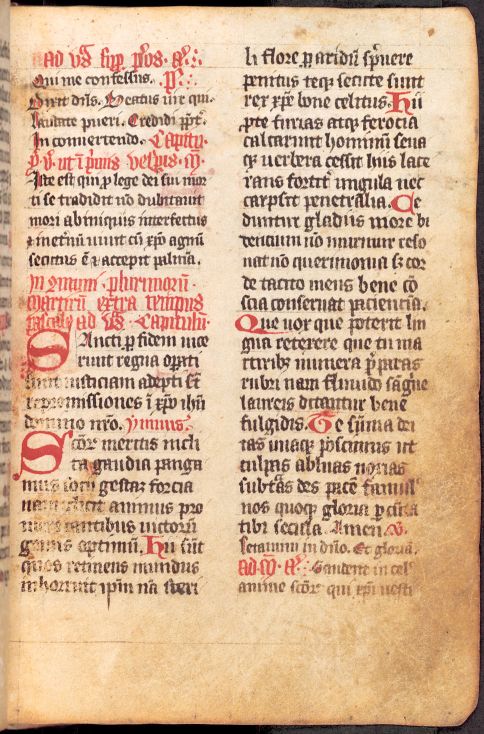 ad vs sup psos. a.
Qui me confessus. ps.
Dixit dns. Beatus vir qui.
laudate pueri. Credidi ppt.
In convertendo. Capitlm
Iste est qui p lege dei sui mor
ti se tradidit nō dubitavit
mori ab iniquis interfectus
⁊ in etnū vivit cū xpo agnū
secutus ē ⁊ accepit palmā.
In omnium plurimorū
martirū extra tempus
pascale ad vs. Capitulū.
Sancti p fidem vice
runt regna opati
sunt iusticiam adepti st
repromissiones ī xpo ihu
domino nro. ymnus.
Sctor meritis incli
ta gaudia panga
mus socii gestaq forcia
nam gliscit animus pro
mere cantibus victorū
genus optimū. Hii sūt
quos retinens mundus
inhorruit ipm nā steri
li flore p aridū spvere
penitus teq secute sunt
rex xpe bone celitus. Hii
p te furias atq ferocia
calcarunt hominū seva
q verbera cessit hiis lace
rans fortit ungula nec
carpsit penetralia. Ce
duntur gladiis more bi
dencium nō murmur reso
nat nō querimonia sz cor
de tacito mens bene cō
scia conservat pacienciā.
Que vox que poterit lin
gua retexere que tu ma
rtiribz munera pparas
rubri nam fluvido sāgne
laureis ditantur bene
fulgidis. Te sūma dei
tas unaq poscimus ut
culpas abluas noxias
subtas des pacē famul
nos quoq gloria p cūcta
tibi secula. Amen. v.
letamini in dno. Et gloria.
ad m. a. Gaudent in cel
anime sctor qui xpi vesti